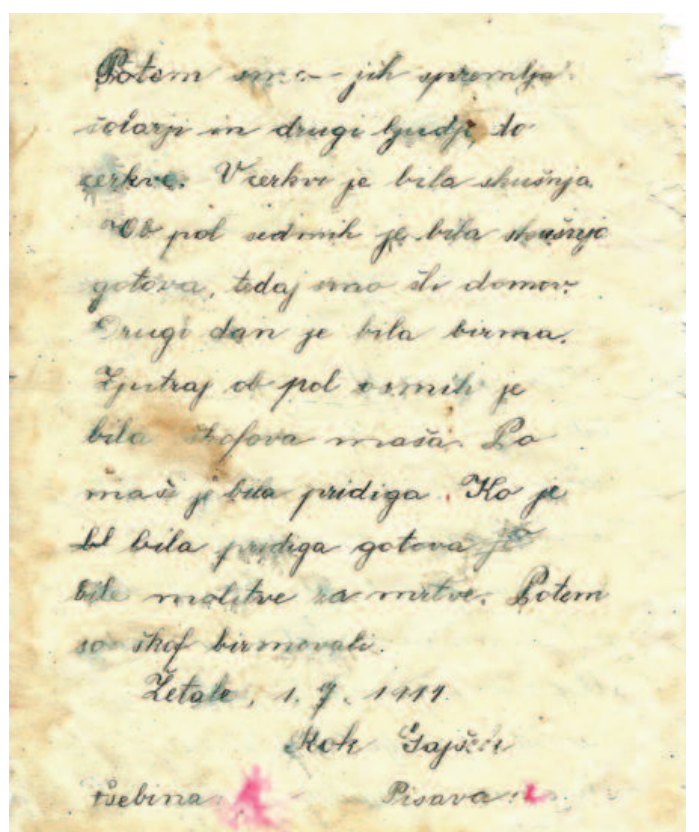 Potem smo jih spremlja
šolarji in drugi ljudje, do
cerkve. V cerkvi je bila skušnja
Ob pol sedmih je bila skušnja
gotova, tedaj smo šli domov.
Drugi dan je bila birma.
Zjutraj ob pol osmih je
bila škofova maša. Po
maši je bila pridiga. Ko je
bl bila pridiga gotova
bile molitve za mrtve. Potem
so škof birmovali.
Žetale, 1. 7.
Rok Gajšek
Vsebina: Pisava: 1